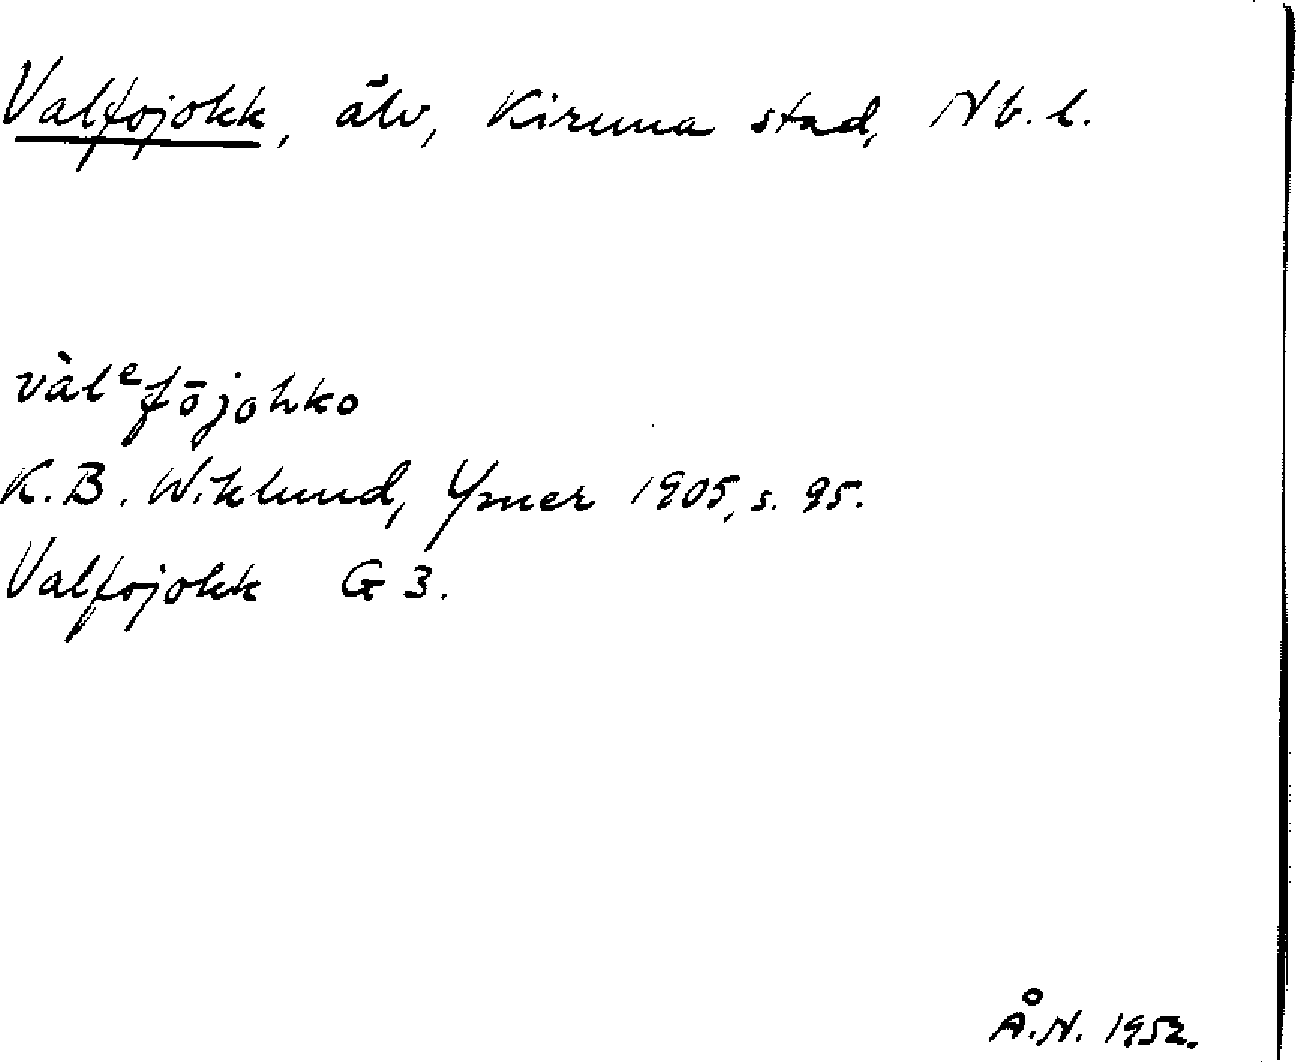 Valfojokk, älv, Kiruna stad, Nb. l.
vàlᵉfōjohko
K. B. Wiklund, Ymer 1905, s. 95.
Valfojokk G 3.
Å. N. 1952.